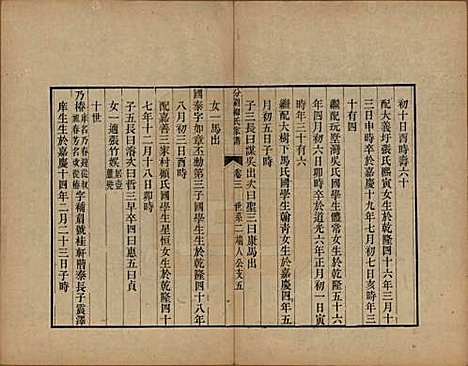 初十日酉時壽六十
配大義圩張氏熙寅女生於乾隆五十二年三月十
三日申時卒於嘉慶十九年七月初七日亥時年三
十有四
繼配玩堂灣吳氏國學生體常女生於乾隆五十六
年四月初六日卯時卒於道光六年正月初一日寅
時年三十有六
繼配大樹下馬氏國學生翰青女生於嘉慶四年五
月初五日子時
子三長曰謀吳出次曰聖三曰康馬出
分湖柳氏家譜
卷三 世系二 瑞人公支 五
女一馬出
國泰字如章丕勳第三子國學生生於乾隆四十八年
八月初三日酉時
配嘉善三家村顧氏國學生星恒女生於乾隆四十
七年十二月十八日卯時
子五長曰溶次曰哲三早卒四曰惠五曰貞
女一適張竹娛
十世
乃椿字補肩號桂軒階泰長子震澤
庠生生於嘉慶十四年二月二十三日子時